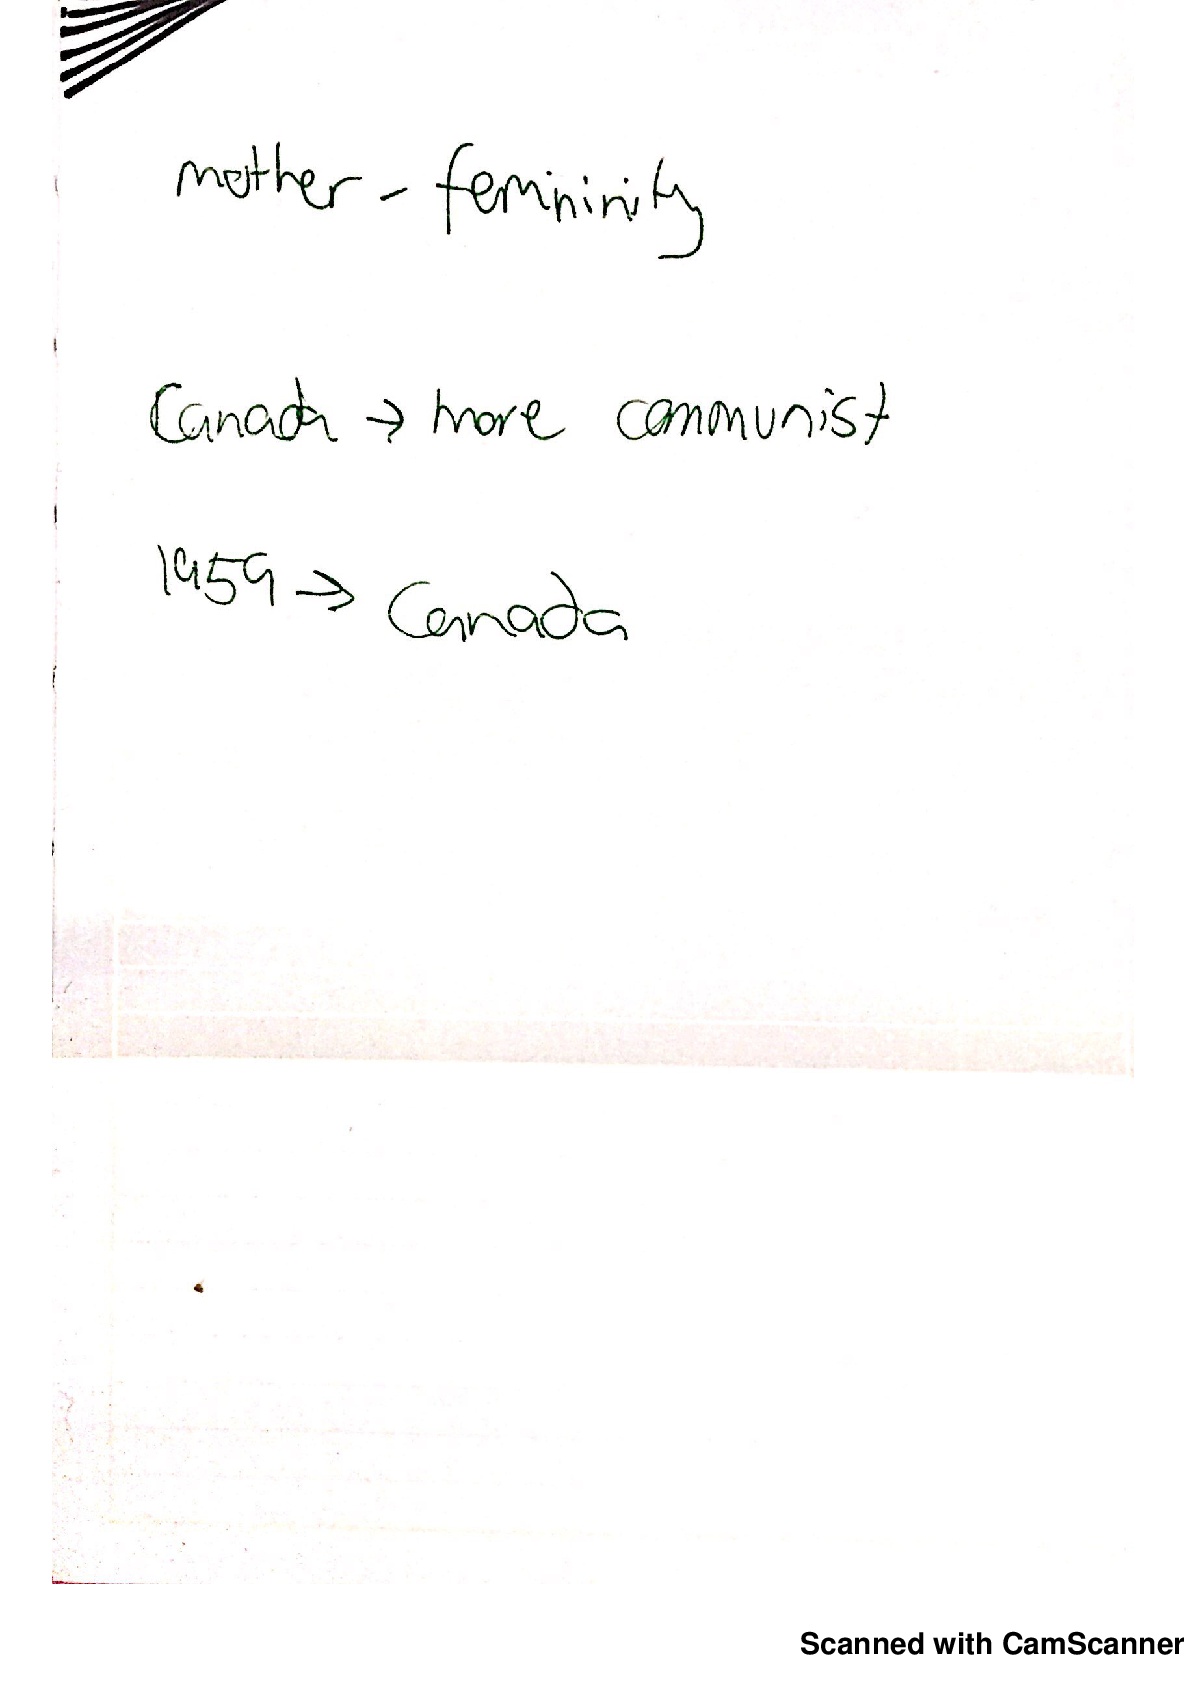 mother - femininity
Canada → more communist
1959 → Canada
Scanned with CamScanner